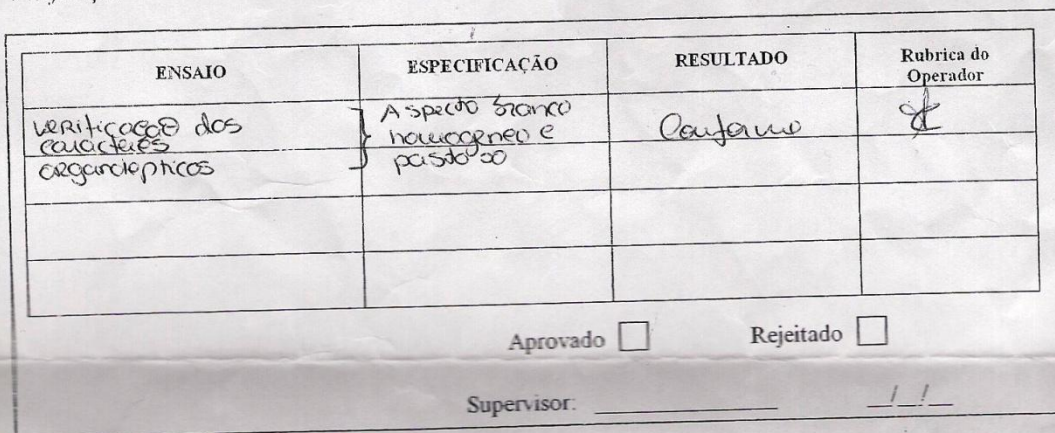 ENSAIO ESPECIFICAÇÃO RESULTADO Rubrica do Operador
verificação dos
caracteres
organolepticos
Aspecto branco
homogeneo e
pastoso
Conforme
Aprovado Rejeitado
Supervisor: ____________ __/__/__